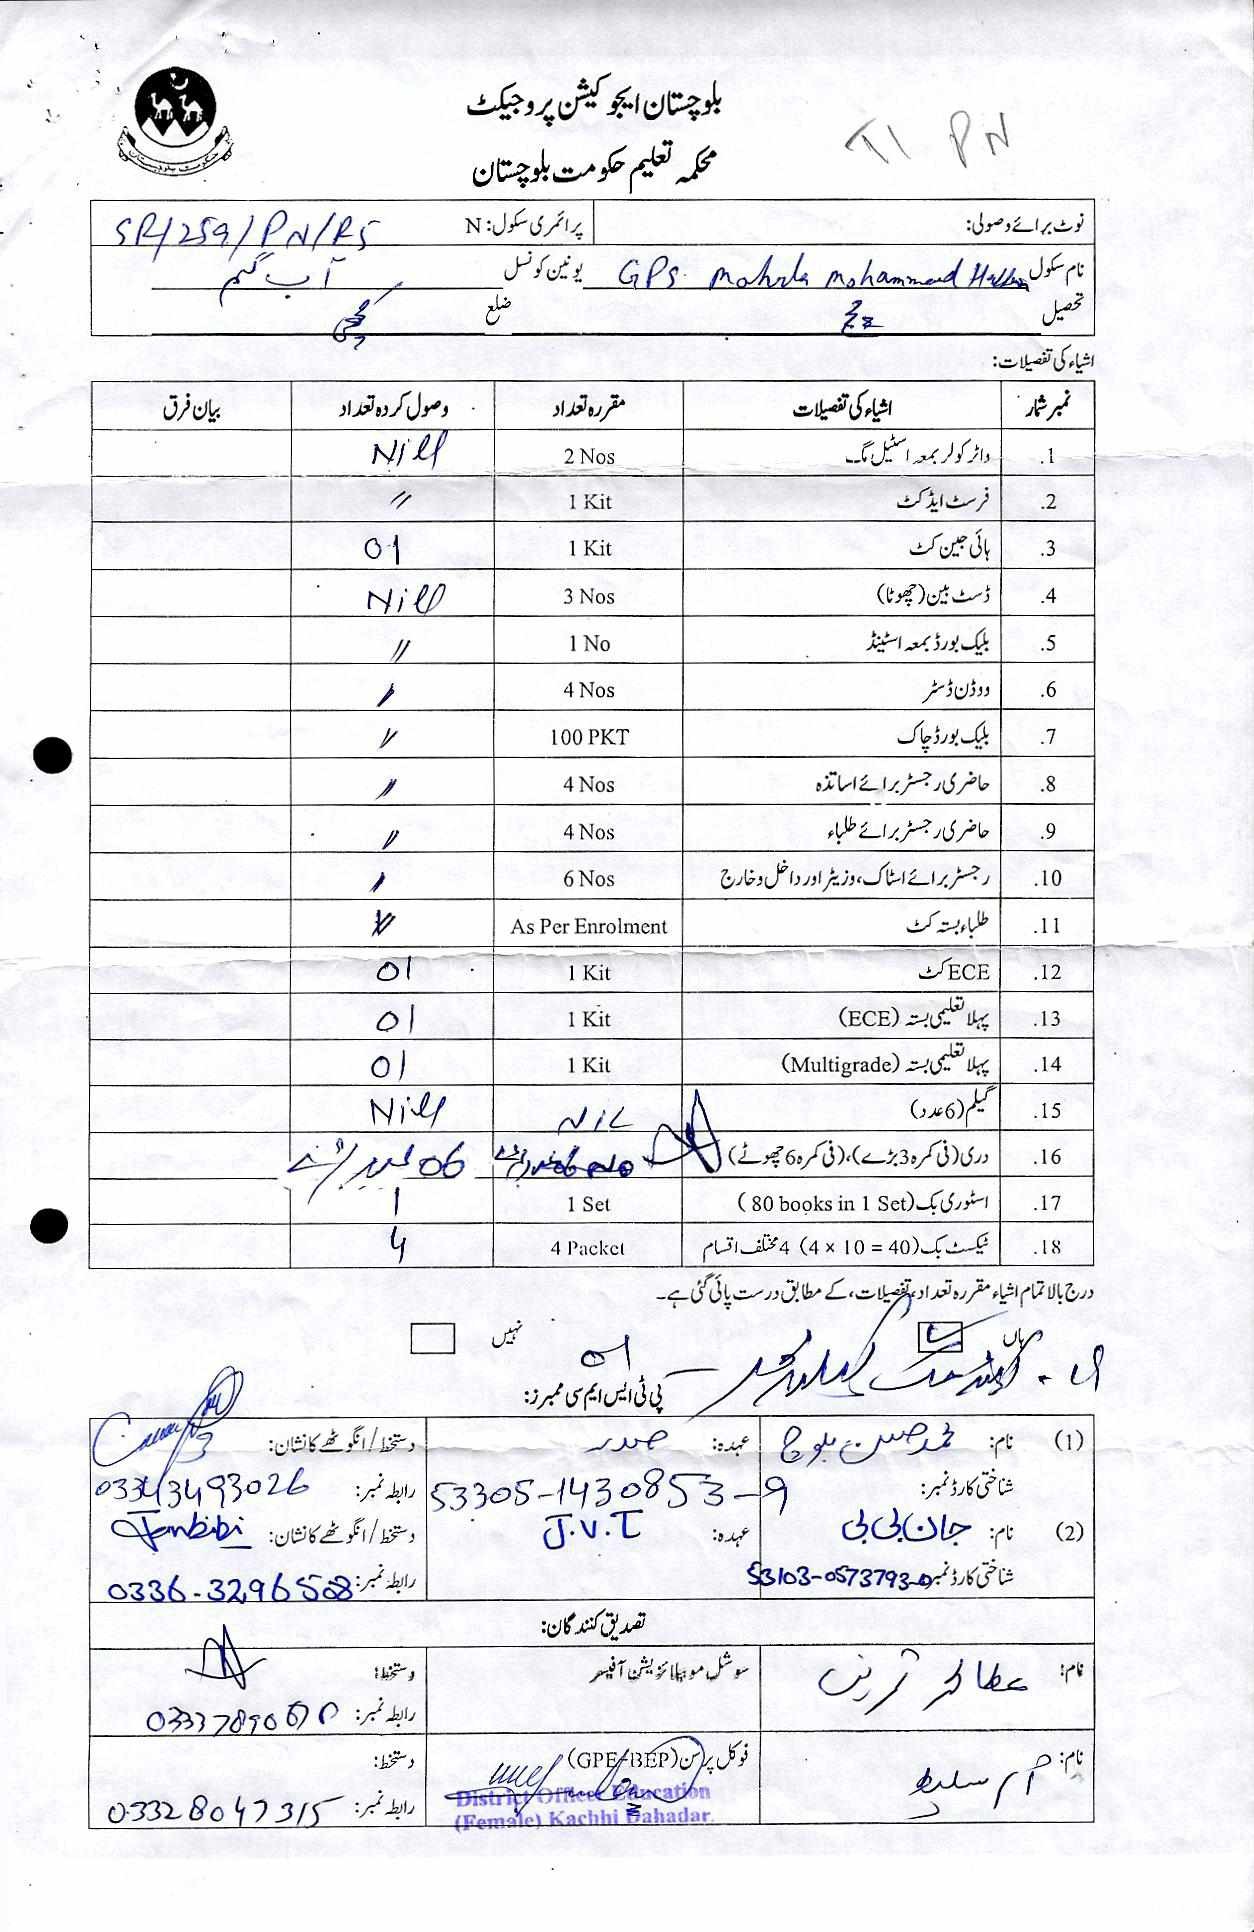 بلوچستان ایجوکیشن پروجیکٹ
محکمہ تعلیم حکومت بلوچستان
TI PN
حکومت بلوچستان
نوٹ برائے وصولی: پرائمری سکول: N SR/259/PN/RS
نام سکول GPS Mohammad یونین کونسل آب گم
تحصیل ضلع
اشیاء کی تفصیلات:
نمبر شمار اشیاء کی تفصیلات مقررہ تعداد وصول کردہ تعداد بیان فرق
1. واٹر کولر بمعہ اسٹیل مگ 2 Nos Nill
2. فرسٹ ایڈ کٹ 1 Kit 〃
3. ہائی جین کٹ 1 Kit 01
4. ڈسٹ بین (چھوٹا) 3 Nos Nill
5. بلیک بورڈ بمعہ اسٹینڈ 1 No 〃
6. ووڈن ڈسٹر 4 Nos 〃
7. بلیک بورڈ چاک 100 PKT 〃
8. حاضری رجسٹر برائے اساتذہ 4 Nos 〃
9. حاضری رجسٹر برائے طلباء 4 Nos 〃
10. رجسٹر برائے اسٹاک، وزیٹر اور داخل و خارج 6 Nos 〃
11. طلباء بستہ کٹ As Per Enrolment 〃
12. ECE کٹ 1 Kit 01
13. پہلا تعلیمی بستہ (ECE) 1 Kit 01
14. پہلا تعلیمی بستہ (Multigrade) 1 Kit 01
15. گیلم (6 عدد) NIL Nill
16. دری (فی کمرہ 3 بڑے)، (فی کمرہ 6 چھوٹے) 06
17. اسٹوری بک (80 books in 1 Set) 1 Set 1
18. ٹیکسٹ بک (4 x 10 = 40) 4 مختلف اقسام 4 Packet 4
درج بالا تمام اشیاء مقررہ تعداد، تفصیلات، کے مطابق درست پائی گئی ہے۔
ہاں نہیں
01
پی ٹی ایس ایم سی ممبرز:
(1) نام: محمد حسن بلوچ عہدہ: صدر دستخط/انگوٹھے کا نشان:
شناختی کارڈ نمبر: 53305-1430853-9 رابطہ نمبر: 03343493026
(2) نام: جان بی بی عہدہ: J.V.T دستخط/انگوٹھے کا نشان: Janbibi
شناختی کارڈ نمبر: 53103-0573793-0 رابطہ نمبر: 0336-3296508
تصدیق کنندگان:
نام: سوشل موبیلائزیشن آفیسر دستخط:
رابطہ نمبر:
نام: فوکل پرسن (GPE-BEP) دستخط:
رابطہ نمبر: 03328047315
District Officer Education
(Female) Kachhi Dahadar.